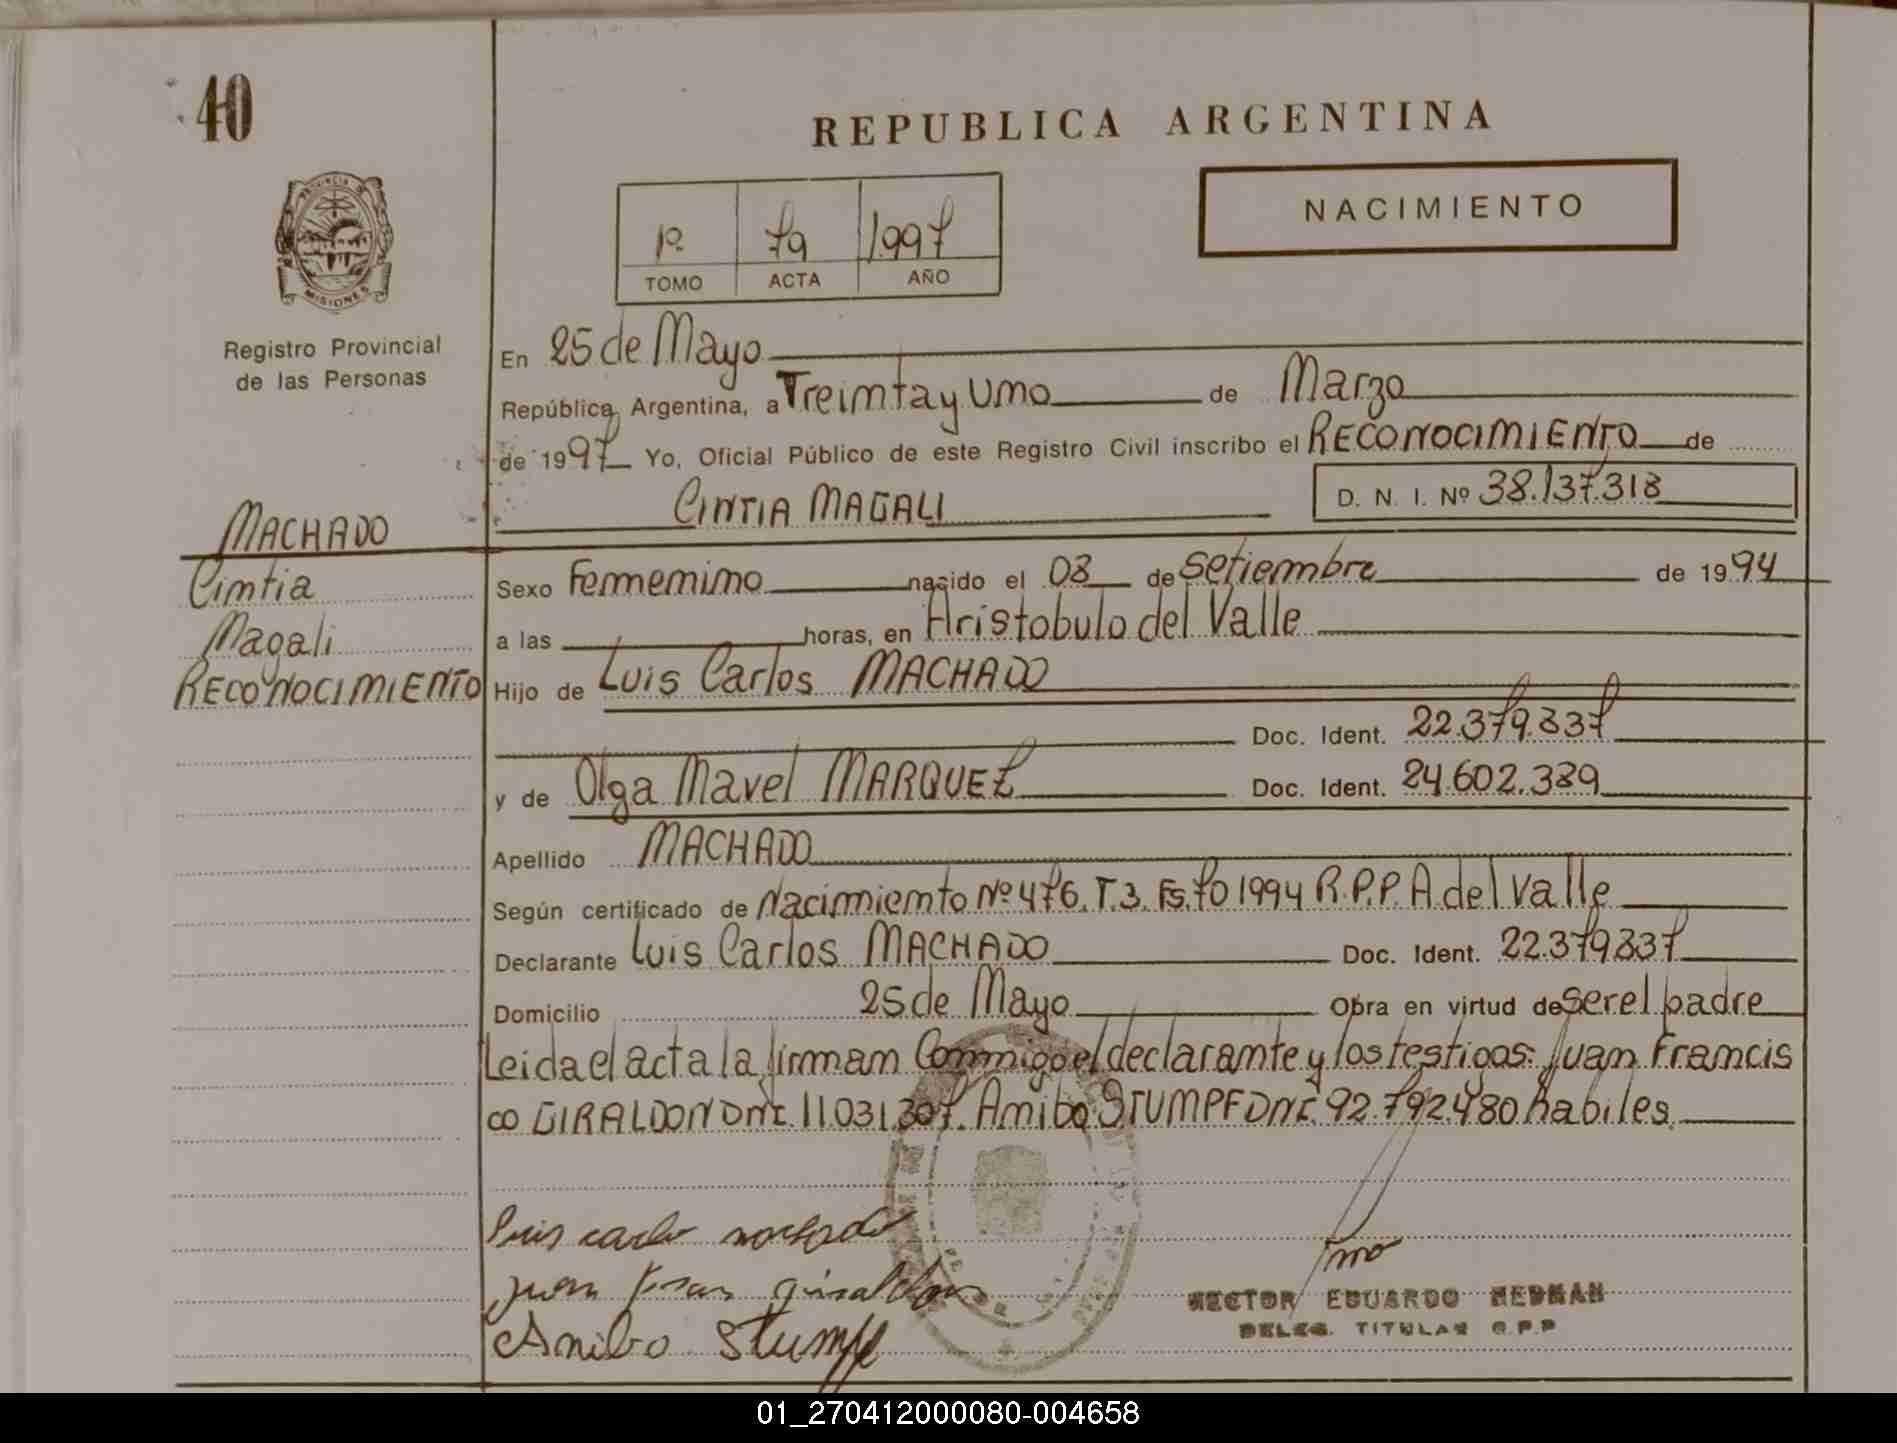 40
REPUBLICA ARGENTINA
NACIMIENTO
1º 79 1.997
TOMO ACTA AÑO
PROVINCIA DE
MISIONES
Registro Provincial
de las Personas
En 25 de Mayo
República Argentina, a Treinta y Uno de Marzo
de 1997 Yo, Oficial Público de este Registro Civil inscribo el RECONOCIMIENTO de
CINTIA MAGALI D. N. I. Nº 38.137.318
MACHADO
Cintia
Magali
RECONOCIMIENTO
Sexo Femenino nacido el 08 de Setiembre de 1994
a las horas, en Aristobulo del Valle
Hijo de Luis Carlos MACHADO
Doc. Ident. 22.379.337
y de Olga Mavel MARQUEZ Doc. Ident. 24.602.339
Apellido MACHADO
Según certificado de Nacimiento Nº 476. T.3. Fs. 70 1994 R.P.P. A del Valle
Declarante Luis Carlos MACHADO Doc. Ident. 22.379.337
Domicilio 25 de Mayo Obra en virtud de ser el padre
Leida el acta la firman Conmigo el declarante y los testigos: Juan Francis
co GIRALDON DNI. 11.031.307. Anibo STUMPF DNI. 92.792.480 habiles.
Luis carlo machado
juan fran giraldon
Anibo Stumpf
HECTOR EDUARDO
DELEG. TITULAR R.P.P
01_270412000080-004658